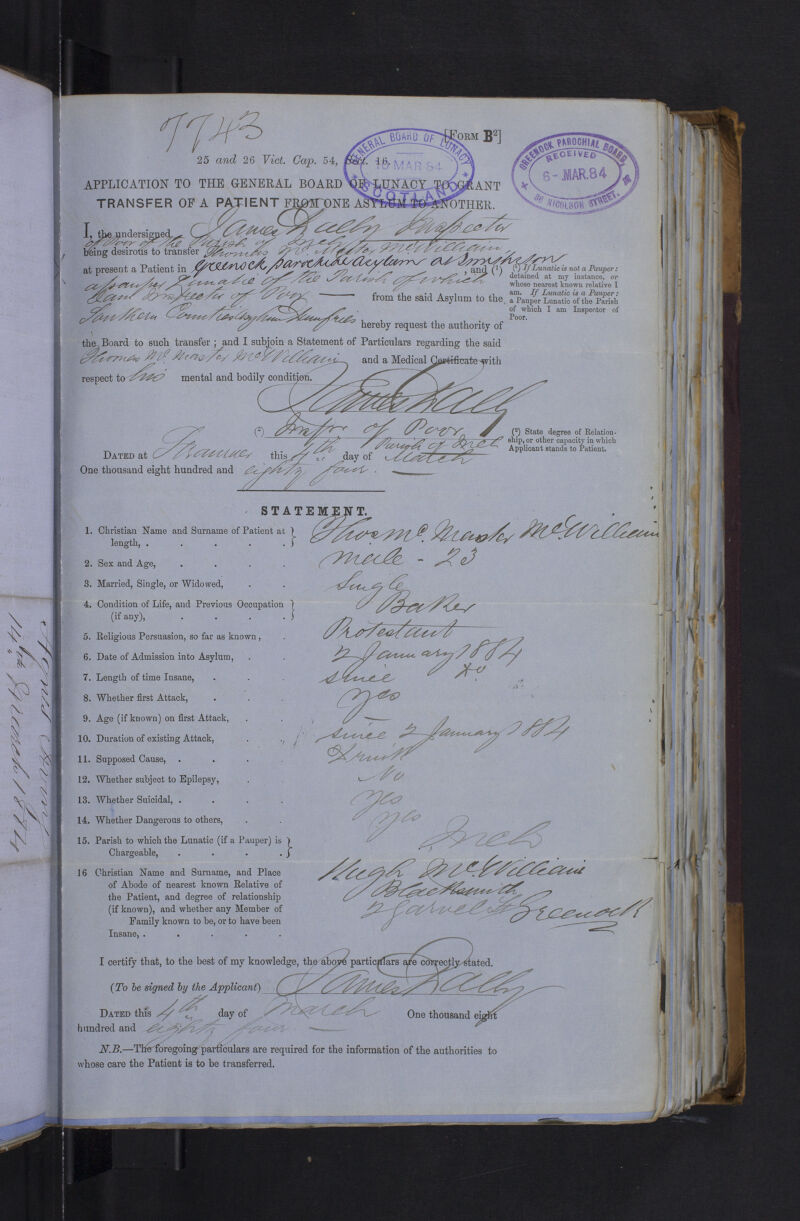 7743
[FORM B²]
25 and 26 Vict. Cap. 54, Sect. 16.
GENERAL BOARD OF LUNACY
MAR 84
SCOTLAND
GREENOCK PAROCHIAL BOARD,
RECEIVED
6-MAR.84
NICOLSON STREET.
APPLICATION TO THE GENERAL BOARD OF LUNACY TO GRANT
TRANSFER OF A PATIENT FROM ONE ASYLUM TO ANOTHER.
I, the undersigned James Inspector
of Poor of the Parish of Inch
being desirous to transfer Thomas McMaster McWilliam
at present a Patient in Greenock parochial asylum at Smithson, and (¹)
a pauper Lunatic of the Parish of which
I am Inspector of Poor from the said Asylum to the
Southern Counties Asylum Dumfries hereby request the authority of
the Board to such transfer; and I subjoin a Statement of Particulars regarding the said
Thomas McMaster McWilliam and a Medical Certificate with
respect to his mental and bodily condition.
(¹) If Lunatic is not a Pauper:
detained at my instance, or
whose nearest known relative I
am. If Lunatic is a Pauper:
a Pauper Lunatic of the Parish
of which I am Inspector of
Poor.
James
(²) Inspr of Poor
Parish of Inch
(²) State degree of Relation-
ship, or other capacity in which
Applicant stands to Patient.
DATED at Stranraer this 4th day of March
One thousand eight hundred and eighty four.
STATEMENT.
1. Christian Name and Surname of Patient at length, . Thos Mc Master McWilliam
2. Sex and Age, male - 23
3. Married, Single, or Widowed, Single
4. Condition of Life, and Previous Occupation (if any), Baker
5. Religious Persuasion, so far as known, Protestant
6. Date of Admission into Asylum, 2 January 1884
7. Length of time Insane, since Do
8. Whether first Attack, yes
9. Age (if known) on first Attack,
10. Duration of existing Attack, since 2 January 1884
11. Supposed Cause, Drink
12. Whether subject to Epilepsy, No
13. Whether Suicidal, yes
14. Whether Dangerous to others, yes
15. Parish to which the Lunatic (if a Pauper) is Chargeable, Inch
16 Christian Name and Surname, and Place
of Abode of nearest known Relative of
the Patient, and degree of relationship
(if known), and whether any Member of
Family known to be, or to have been
Insane,
Hugh McWilliam
Blacksmith
2 Garvel St Greenock
I certify that, to the best of my knowledge, the above particulars are correctly stated.
(To be signed by the Applicant) James
DATED this 4th day of March One thousand eight
hundred and eighty four
N.B.—The foregoing particulars are required for the information of the authorities to
whose care the Patient is to be transferred.